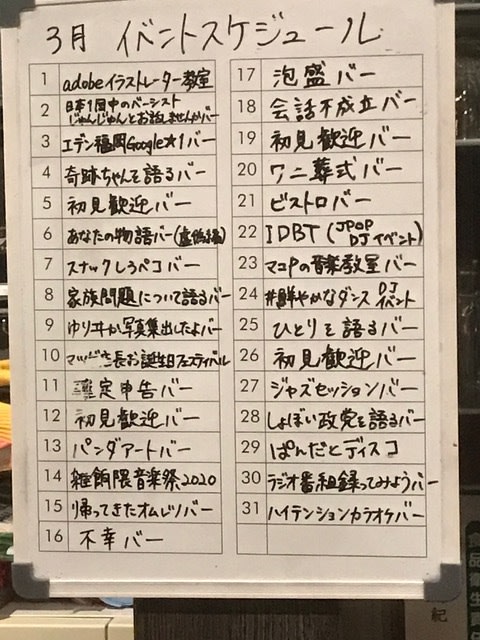 3月 イベントスケジュール
1 adobeイラストレーター教室
2 日本1周中のバーシスト
じゃんじゃんとお話しませんかバー
3 エデン福岡Google★1バー
4 奇跡ちゃんを語るバー
5 初見歓迎バー
6 あなたの物語バー(虚偽編)
7 スナックしろペコバー
8 家族問題について語るバー
9 ゆりヰか写真集出したよバー
10 マッド長お誕生日フェスティバル
11 確定申告バー
12 初見歓迎バー
13 パンダアートバー
14 雑餉隈音楽祭2020
15 帰ってきたオムレツバー
16 不幸バー
17 泡盛バー
18 会話不成立バー
19 初見歓迎バー
20 ワニ葬式バー
21 ビストロバー
22 IDBT (JPOP
DJイベント)
23 マコPの音楽教室バー
24 #鮮やかなダンス DJ
イベント
25 ひとりを語るバー
26 初見歓迎バー
27 ジャズセッションバー
28 しょぼい政党を語るバー
29 ぱんだとディスコ
30 ラジオ番組録ってみようバー
31 ハイテンションカラオケバー
紀